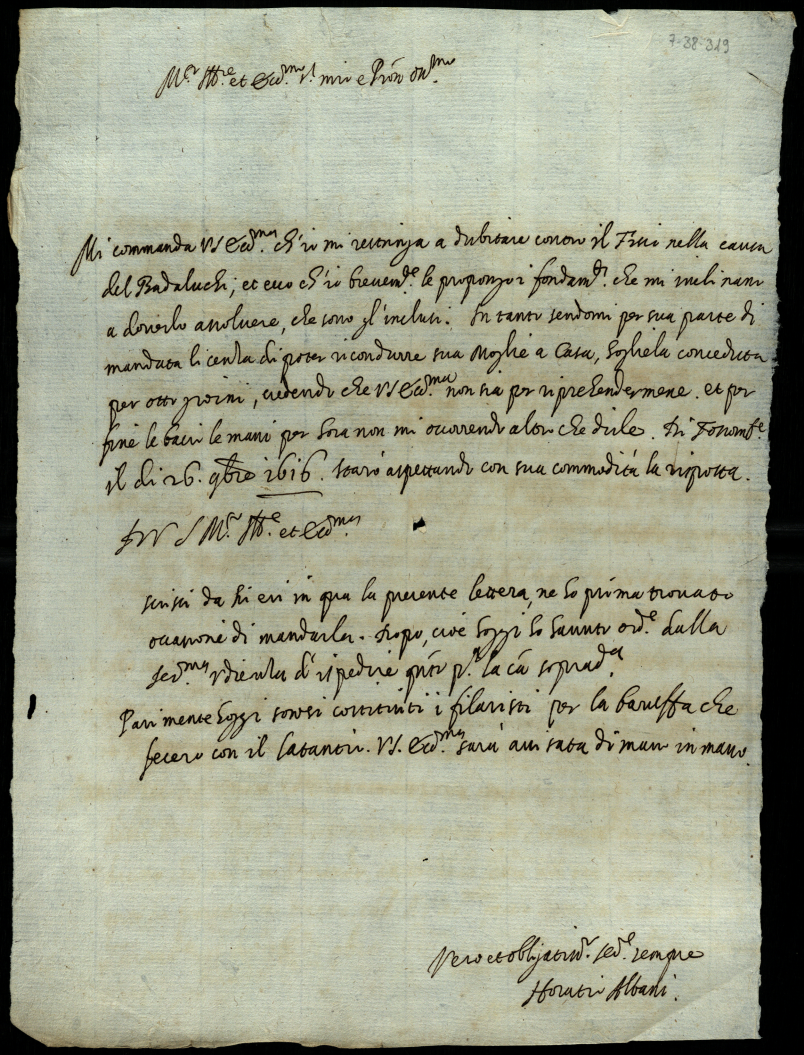 7-38-319
M.r Ill.re et Ecc.mo S.r mio e Pròn oss.mo
Mi commanda VS Ecc.ma ch'io mi restringa a dubitare contro il Fisco nella causa
del Badaluchi; et ecco ch'io brevem.te le propongo i fondam.ti che mi inclinano
a doverlo assolvere, che sono gl'inclusi. In tanto sendomi per sua parte di
mandata licenza di poter ricondurre sua Moglie a Casa, hogliela conceduta
per otto giorni, credendo che VS Ecc.ma non sia per riprehendermene. et per
fine le bacio le mani per hora non mi occorrendo altro che dirle. Di Fossomb.e
il di 26. 9bre 1616. starò aspettando con sua commodità la risposta.
Di V S M.r Ill.e et Ecc.ma
scrissi da hieri in qua la presente lettera, ne ho prima trovato
occasione di mandarla. Dopo, cioè hoggi ho havuto ord.e dalla
Ser.ma Udienza di ispedire q.to p.a la cã soprad.a
Parimente hoggi sonosi costituiti i filaristi per la baruffa che
fecero con il Satanti. VS. Ecc.ma sarà avisata di mano in mano.
Vero et oblijatis.o ser.e sempre
Horatio Albani.